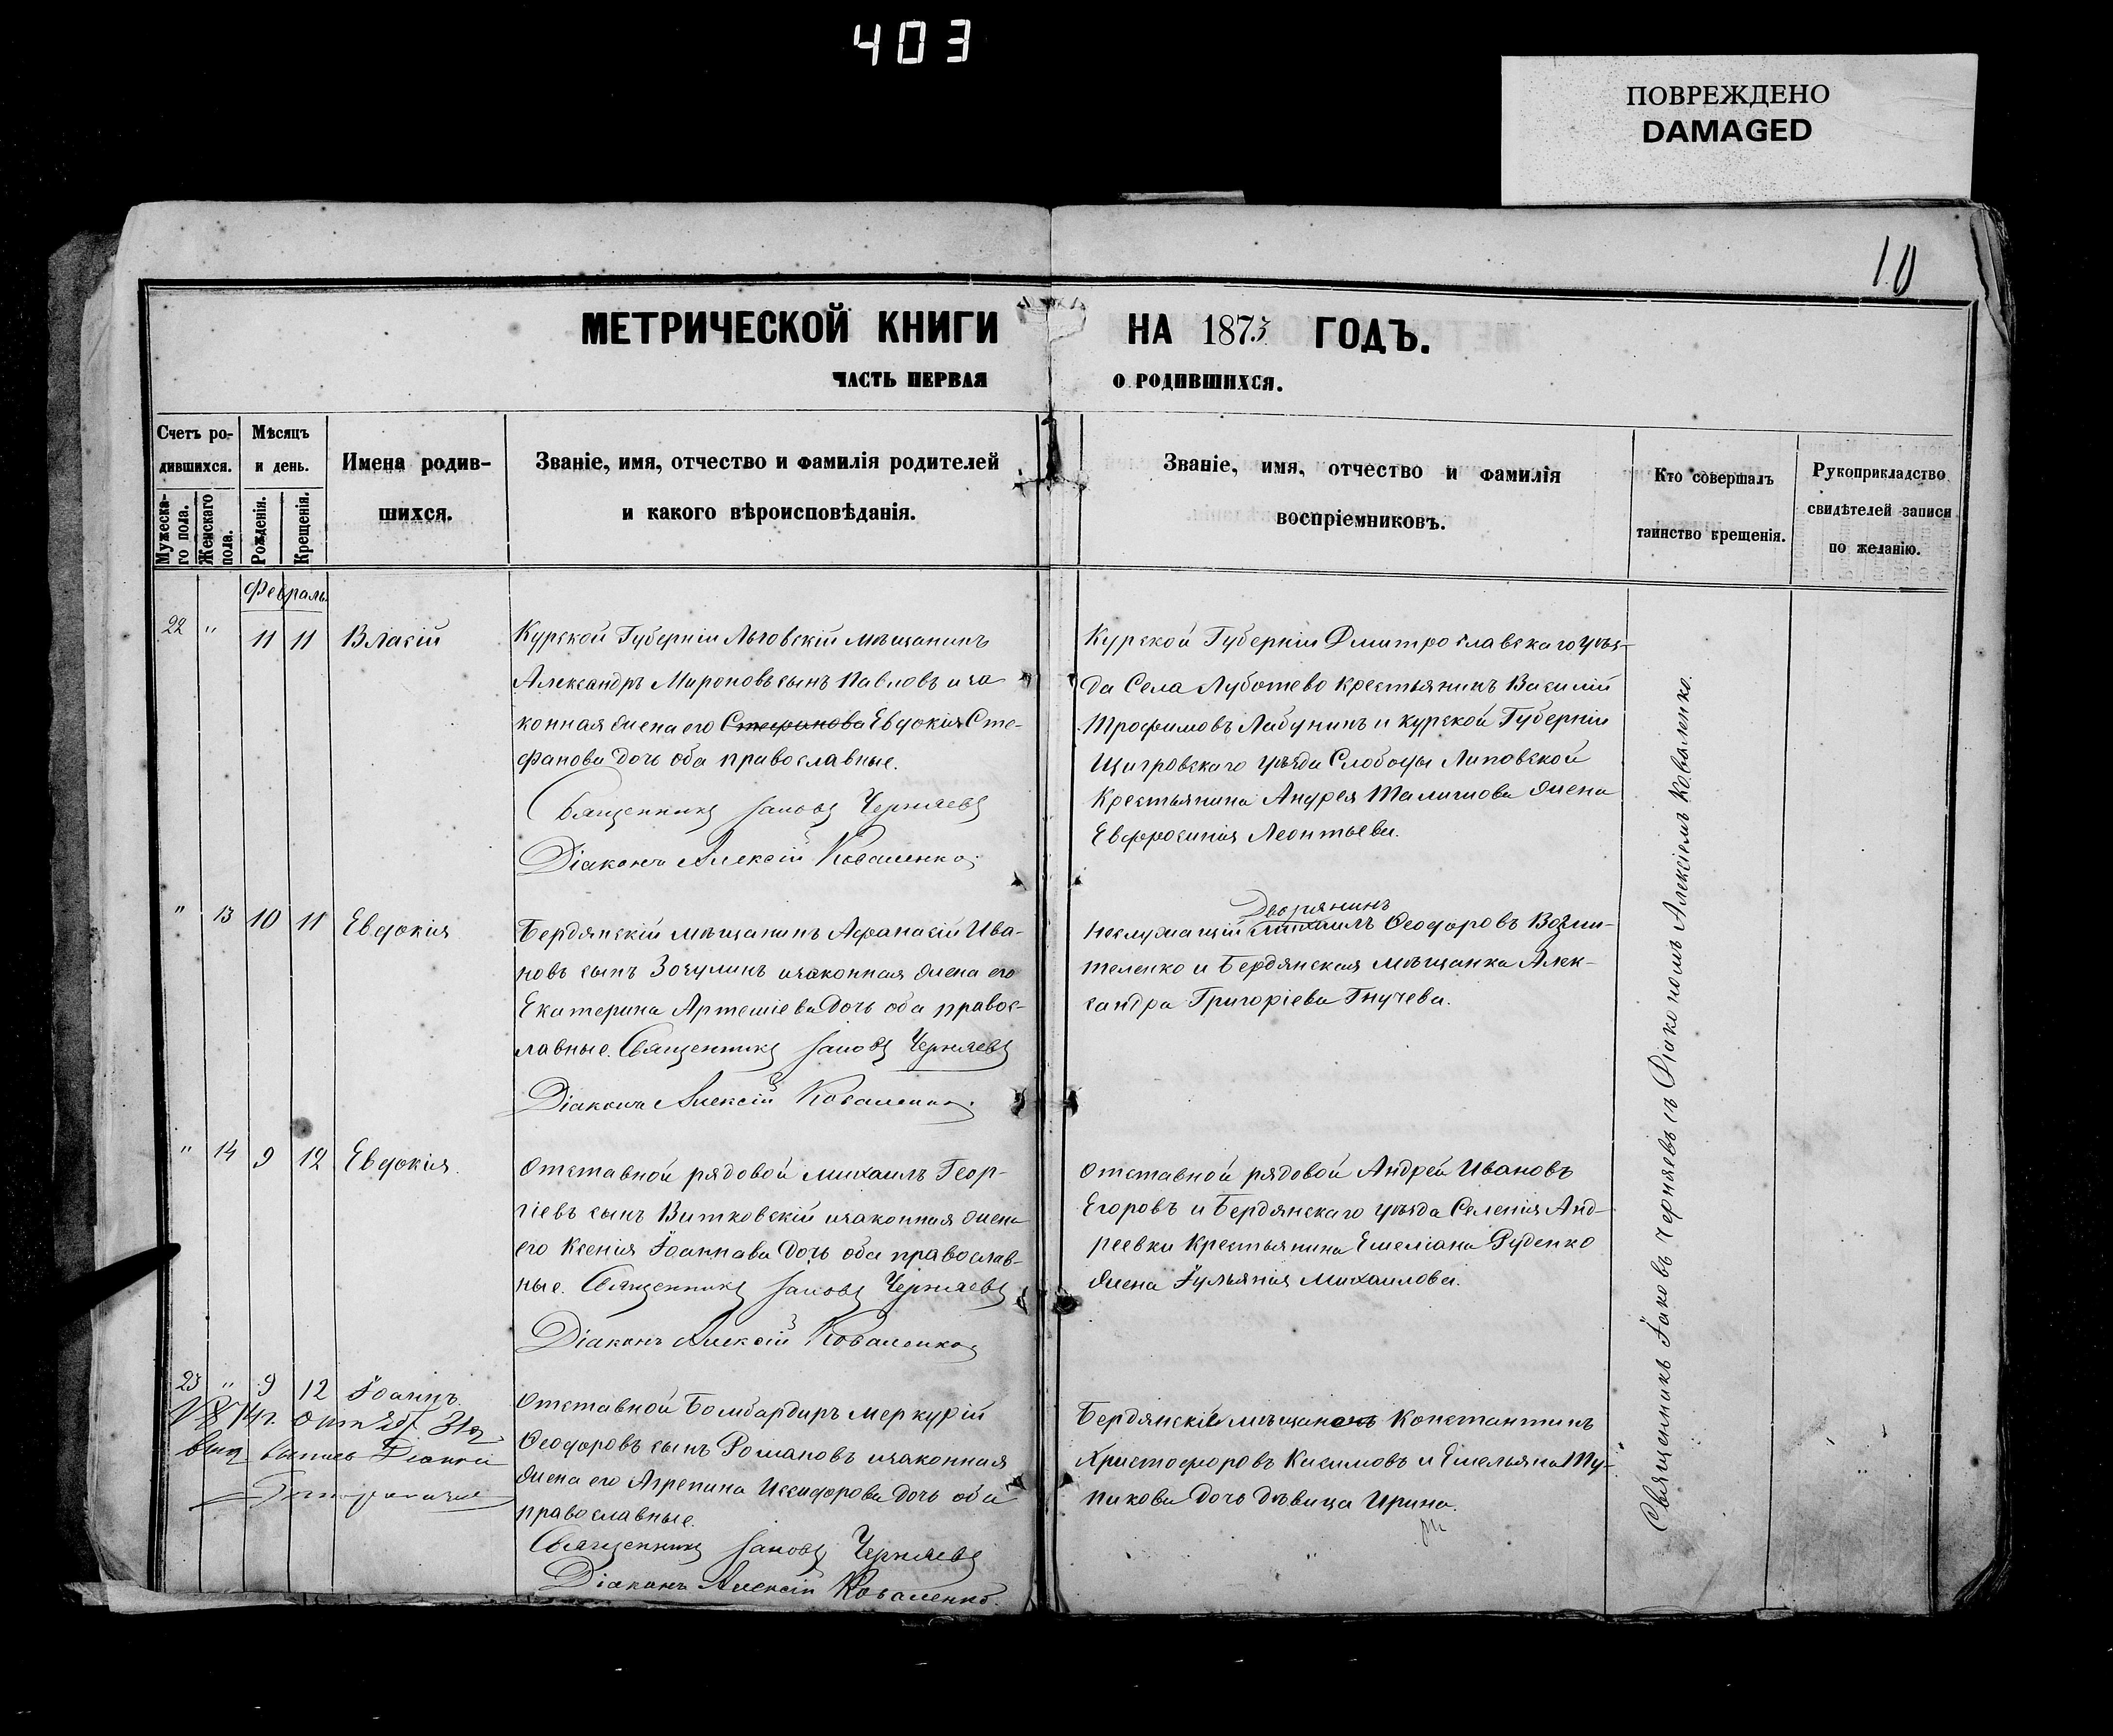 403
ПОВРЕЖДЕНО
DAMAGED
10
МЕТРИЧЕСКОЙ КНИГИ НА 1873 ГОДЪ.
ЧАСТЬ ПЕРВАЯ О РОДИВШИХСЯ.
Счетъ ро-
дившихся.
Мужеска-
го пола.
Женскаго
пола.
Мѣсяцъ
и день.
Рожденія.
Крещенія.
Имена родив-
шихся.
Званіе, имя, отчество и фамилія родителей
и какого вѣроисповѣданія.
Званіе, имя, отчество и фамилія
воспріемниковъ.
Кто совершалъ
таинство крещенія.
Рукоприкладство
свидѣтелей записи
по желанію.
Февраль
22 " 11 11 Власій
Курской Губерніи Льговскій мѣщанинъ
Александръ Мироновъ сынъ Павловъ и за
конная жена его Стефанова Евдокія Сте-
фанова дочь оба православные.
Священникъ Іаковъ Черняевъ
Діаконъ Алексій Коваленко
Курской Губерніи Дмитрославскаго уѣз-
да Села Луботево крестьянинъ Василій
Трофимовъ Лабунинъ и курской Губерніи
Щигровскаго уѣзда Слободы Липовской
Крестьянина Андрея жена
Евфросинія Леонтьева.
" 13 10 11 Евдокія
Бердянскій мѣщанинъ Афанасій Ива-
новъ сынъ Зозулинъ изаконная жена его
Екатерина Артеміева дочь оба правос-
лавные. Священникъ Іаковъ Черняевъ
Діаконъ Алексій Коваленко.
Дворянинъ
Неслужащій Михаилъ Ѳеодоровъ
и Бердянская мѣщанка Алек-
сандра Григоріева Гнучева.
" 14 9 12 Евдокія.
Отставной рядовой Михаилъ Геор-
гіевъ сынъ Витковскій изаконная жена
его Ксенія Іоаннава дочь оба православ-
ные. Священникъ Іаковъ Черняевъ
Діаконъ Алексій Коваленко
Отставной рядовой Андрей Ивановъ
Егоровъ и Бердянскаго уѣзда Селенія Анд-
реевки Крестьянина Емеліана Руденко
жена Іульянія Михаилова.
23 " 9 12 Іоаннъ.
Отставной Бомбардиръ Меркурій
Ѳеодоровъ сынъ Романовъ изаконная
жена его Агрепина Исидорова дочь оба
православные.
Священникъ Іаковъ Черняевъ
Діаконъ Алексій Коваленко.
Бердянскіе Константинъ
Христофоровъ Касимовъ и Емельяна Ту-
пикова дочь дѣвица Ирина.
Священникъ Іаковъ Черняевъ съ Діакономъ Алексіемъ Коваленко.